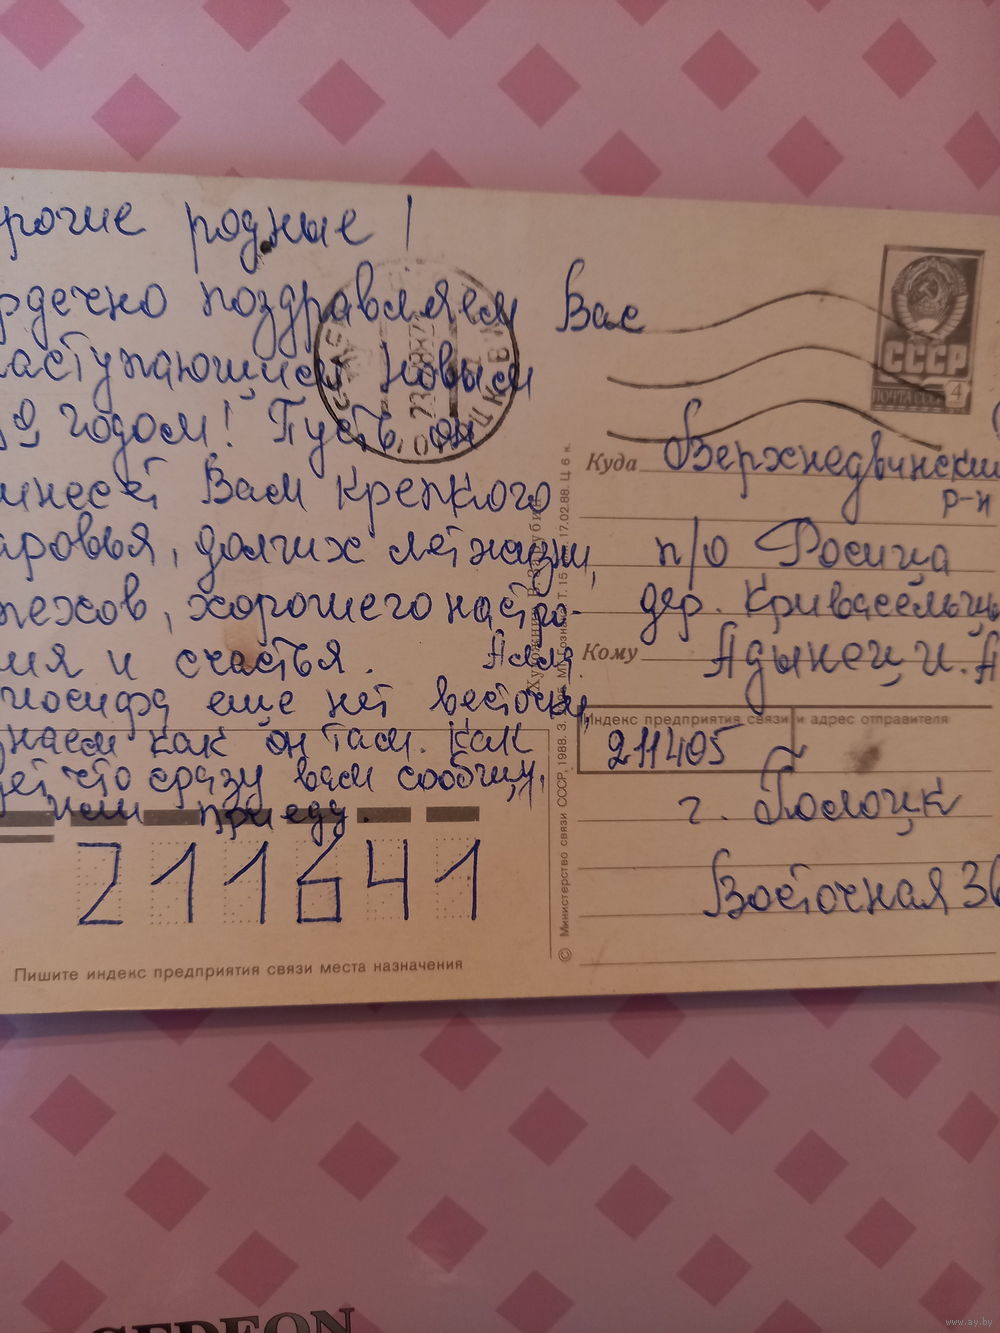 рогие родные!
рдечно поздравляем Вас
аступающим Новым
годом! Пусть он
инесёт Вам крепкого
доровья, долгих лет жизни,
пехов, хорошего настро-
ия и счастья.
иосифа ещё нет весточки,
знаем как он там. Как
ет что сразу вам сообщим,
или приеду.
211641
Пишите индекс предприятия связи места назначения
© Министерство связи СССР, 1988. З.
17.02.88. Ц. 6 к.
СССР
ПОЧТА СССР 4
Куда Верхнедвинский
р-н
п/о Росица
дер. Кривасельцы
Кому Адынец И. А
Индекс предприятия связи и адрес отправителя
211405
г. Полоцк
Восточная 36
GEDEON
www.ay.by